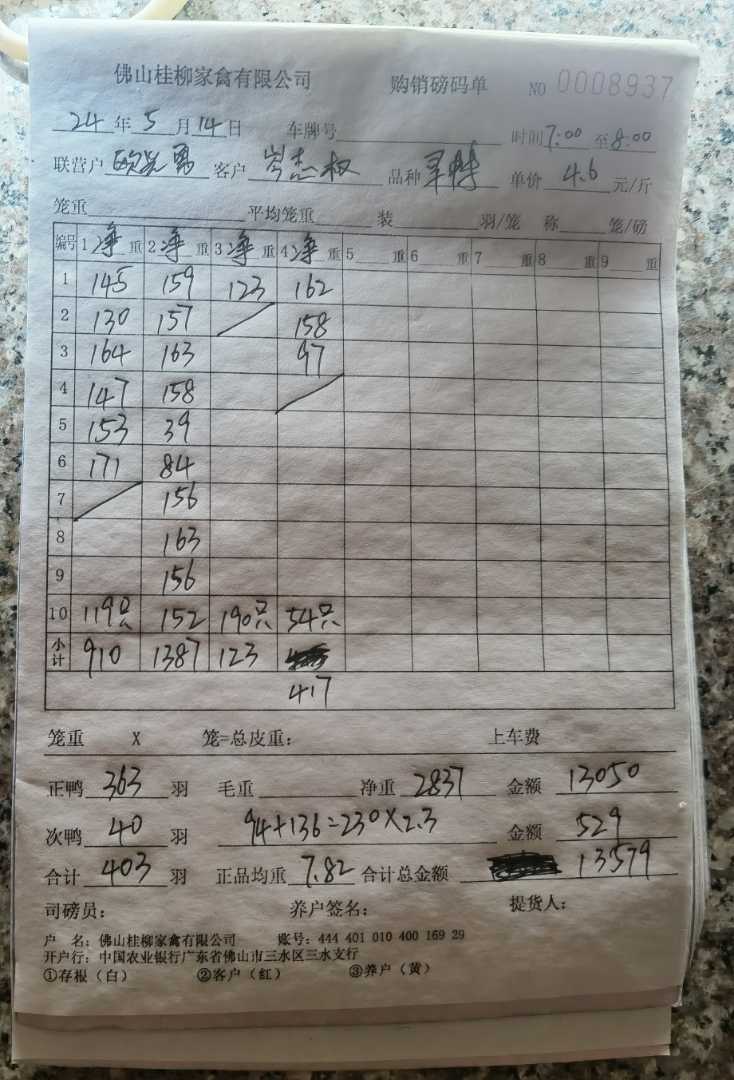 佛山桂柳家禽有限公司 购销磅码单 NO 0008937
24年5月14日 车牌号 时间7:00至8:00
联营户 客户 岑杰权 品种 单价 4.6 元/斤
笼重 平均笼重 装 羽/笼 称 笼/磅
编号 1净重 2净重 3净重 4净重 5 重 6 重 7 重 8 重 9 重
1 145 159 123 162
2 130 157 158
3 164 163 97
4 147 158
5 153 39
6 171 84
7 156
8 163
9 156
10 119只 152 190只 54只
小计 910 1387 123
417
笼重 X 笼=总皮重: 上车费
正鸭 363 羽 毛重 净重 2837 金额 13050
次鸭 40 羽 94+136=230×2.3 金额 529
合计 403 羽 正品均重 7.82 合计总金额 13579
司磅员: 养户签名: 提货人:
户 名: 佛山桂柳家禽有限公司 账号: 444 401 010 400 169 29
开户行: 中国农业银行广东省佛山市三水区三水支行
①存根(白) ②客户(红) ③养户(黄)